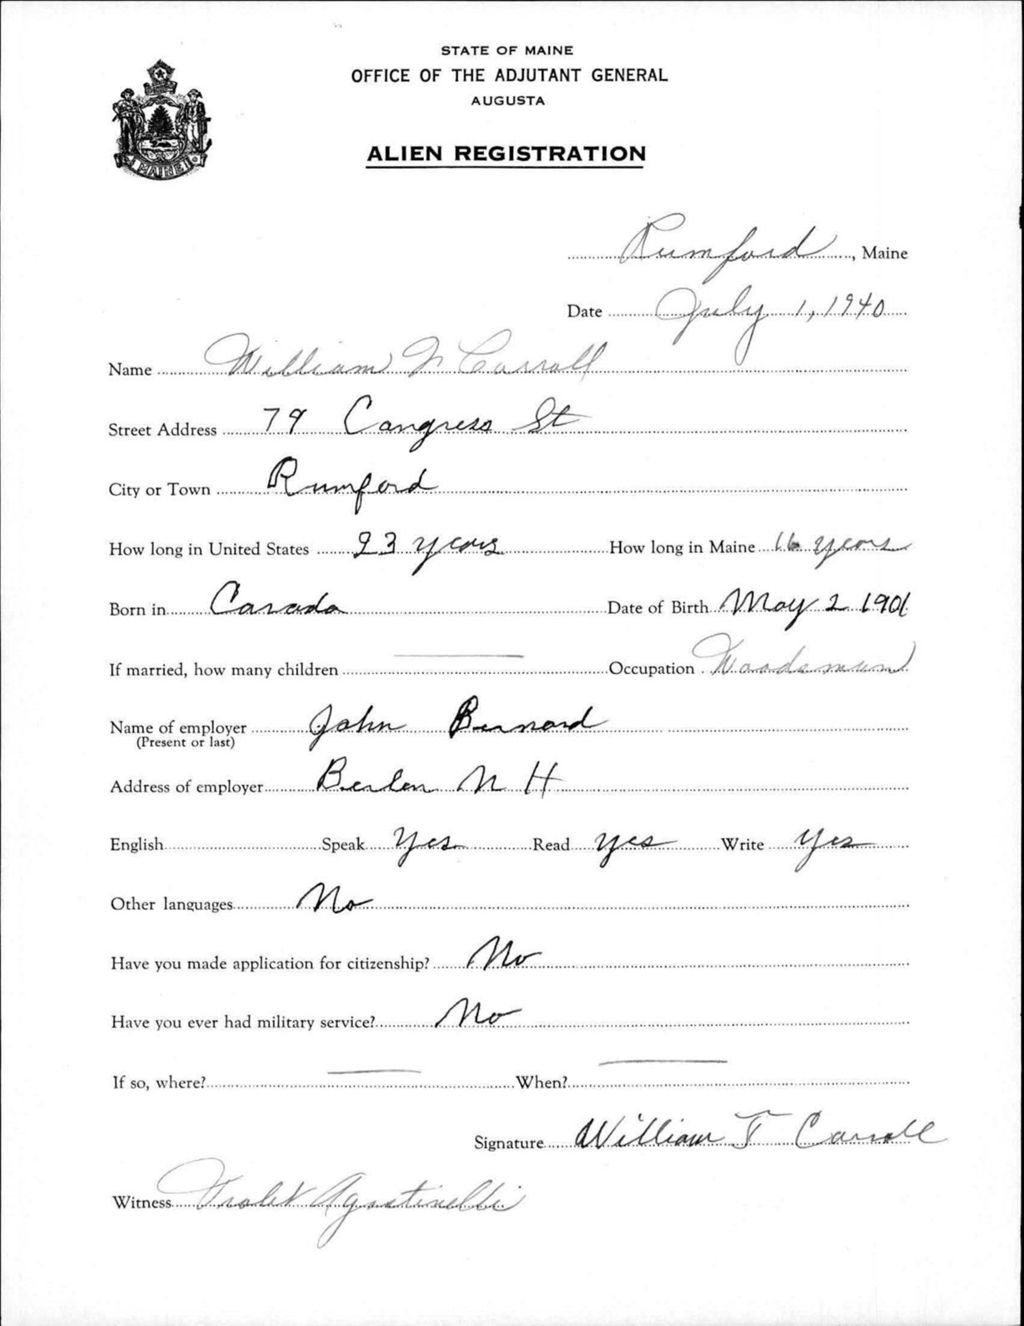 STATE OF MAINE
OFFICE OF THE ADJUTANT GENERAL
AUGUSTA
ALIEN REGISTRATION
MAINE
Rumford, Maine
Date July 1, 1940
Name William F Carroll
Street Address 79 Congress St
City or Town Rumford
How long in United States 23 years How long in Maine 16 years
Born in Canada Date of Birth May 2 1901
If married, how many children — Occupation Woodsman
Name of employer John Bernard
(Present or last)
Address of employer Berlen N H
English Speak Yes Read yes Write Yes
Other languages No
Have you made application for citizenship? No
Have you ever had military service? No
If so, where? — When? —
Signature William F Carroll
Witness Violet Agostinelli